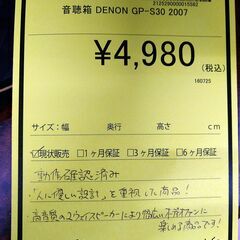 2125290000015582
音聴箱 DENON GP-S30 2007
¥4,980
(税込)
160725
サイズ:幅 奥行 高さ cm
☑現状販売 □1ヶ月保証 □3ヶ月保証 □6ヶ
動作確認済み
「人に優しい設計」を重視した商品!
高音質の2ウェイスピーカーにより幅広い不ファンに
楽しめる商品です!